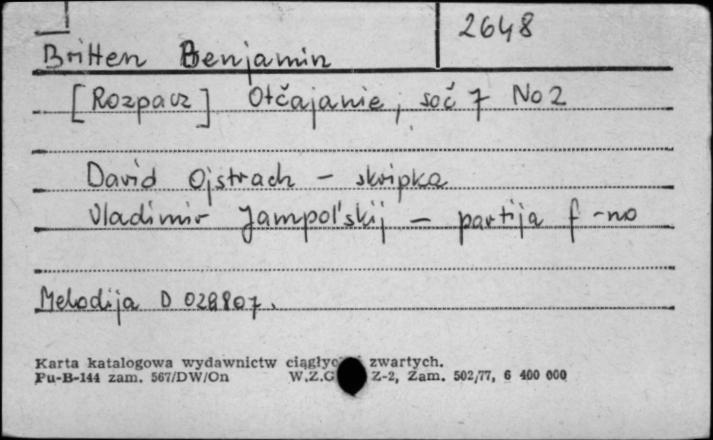 2648
Britten Benjamin
[Rozpacz] Otčajanie, soč 7 No 2
David Ojstrach - skripka
Vladimir Jampol'skij - partija f-no
Melodija D 028807.
Karta katalogowa wydawnictw zwartych.
Pu-B-144 zam. 567/DW/On W.Z.G Z-2, Zam. 502/77, 6 400 000